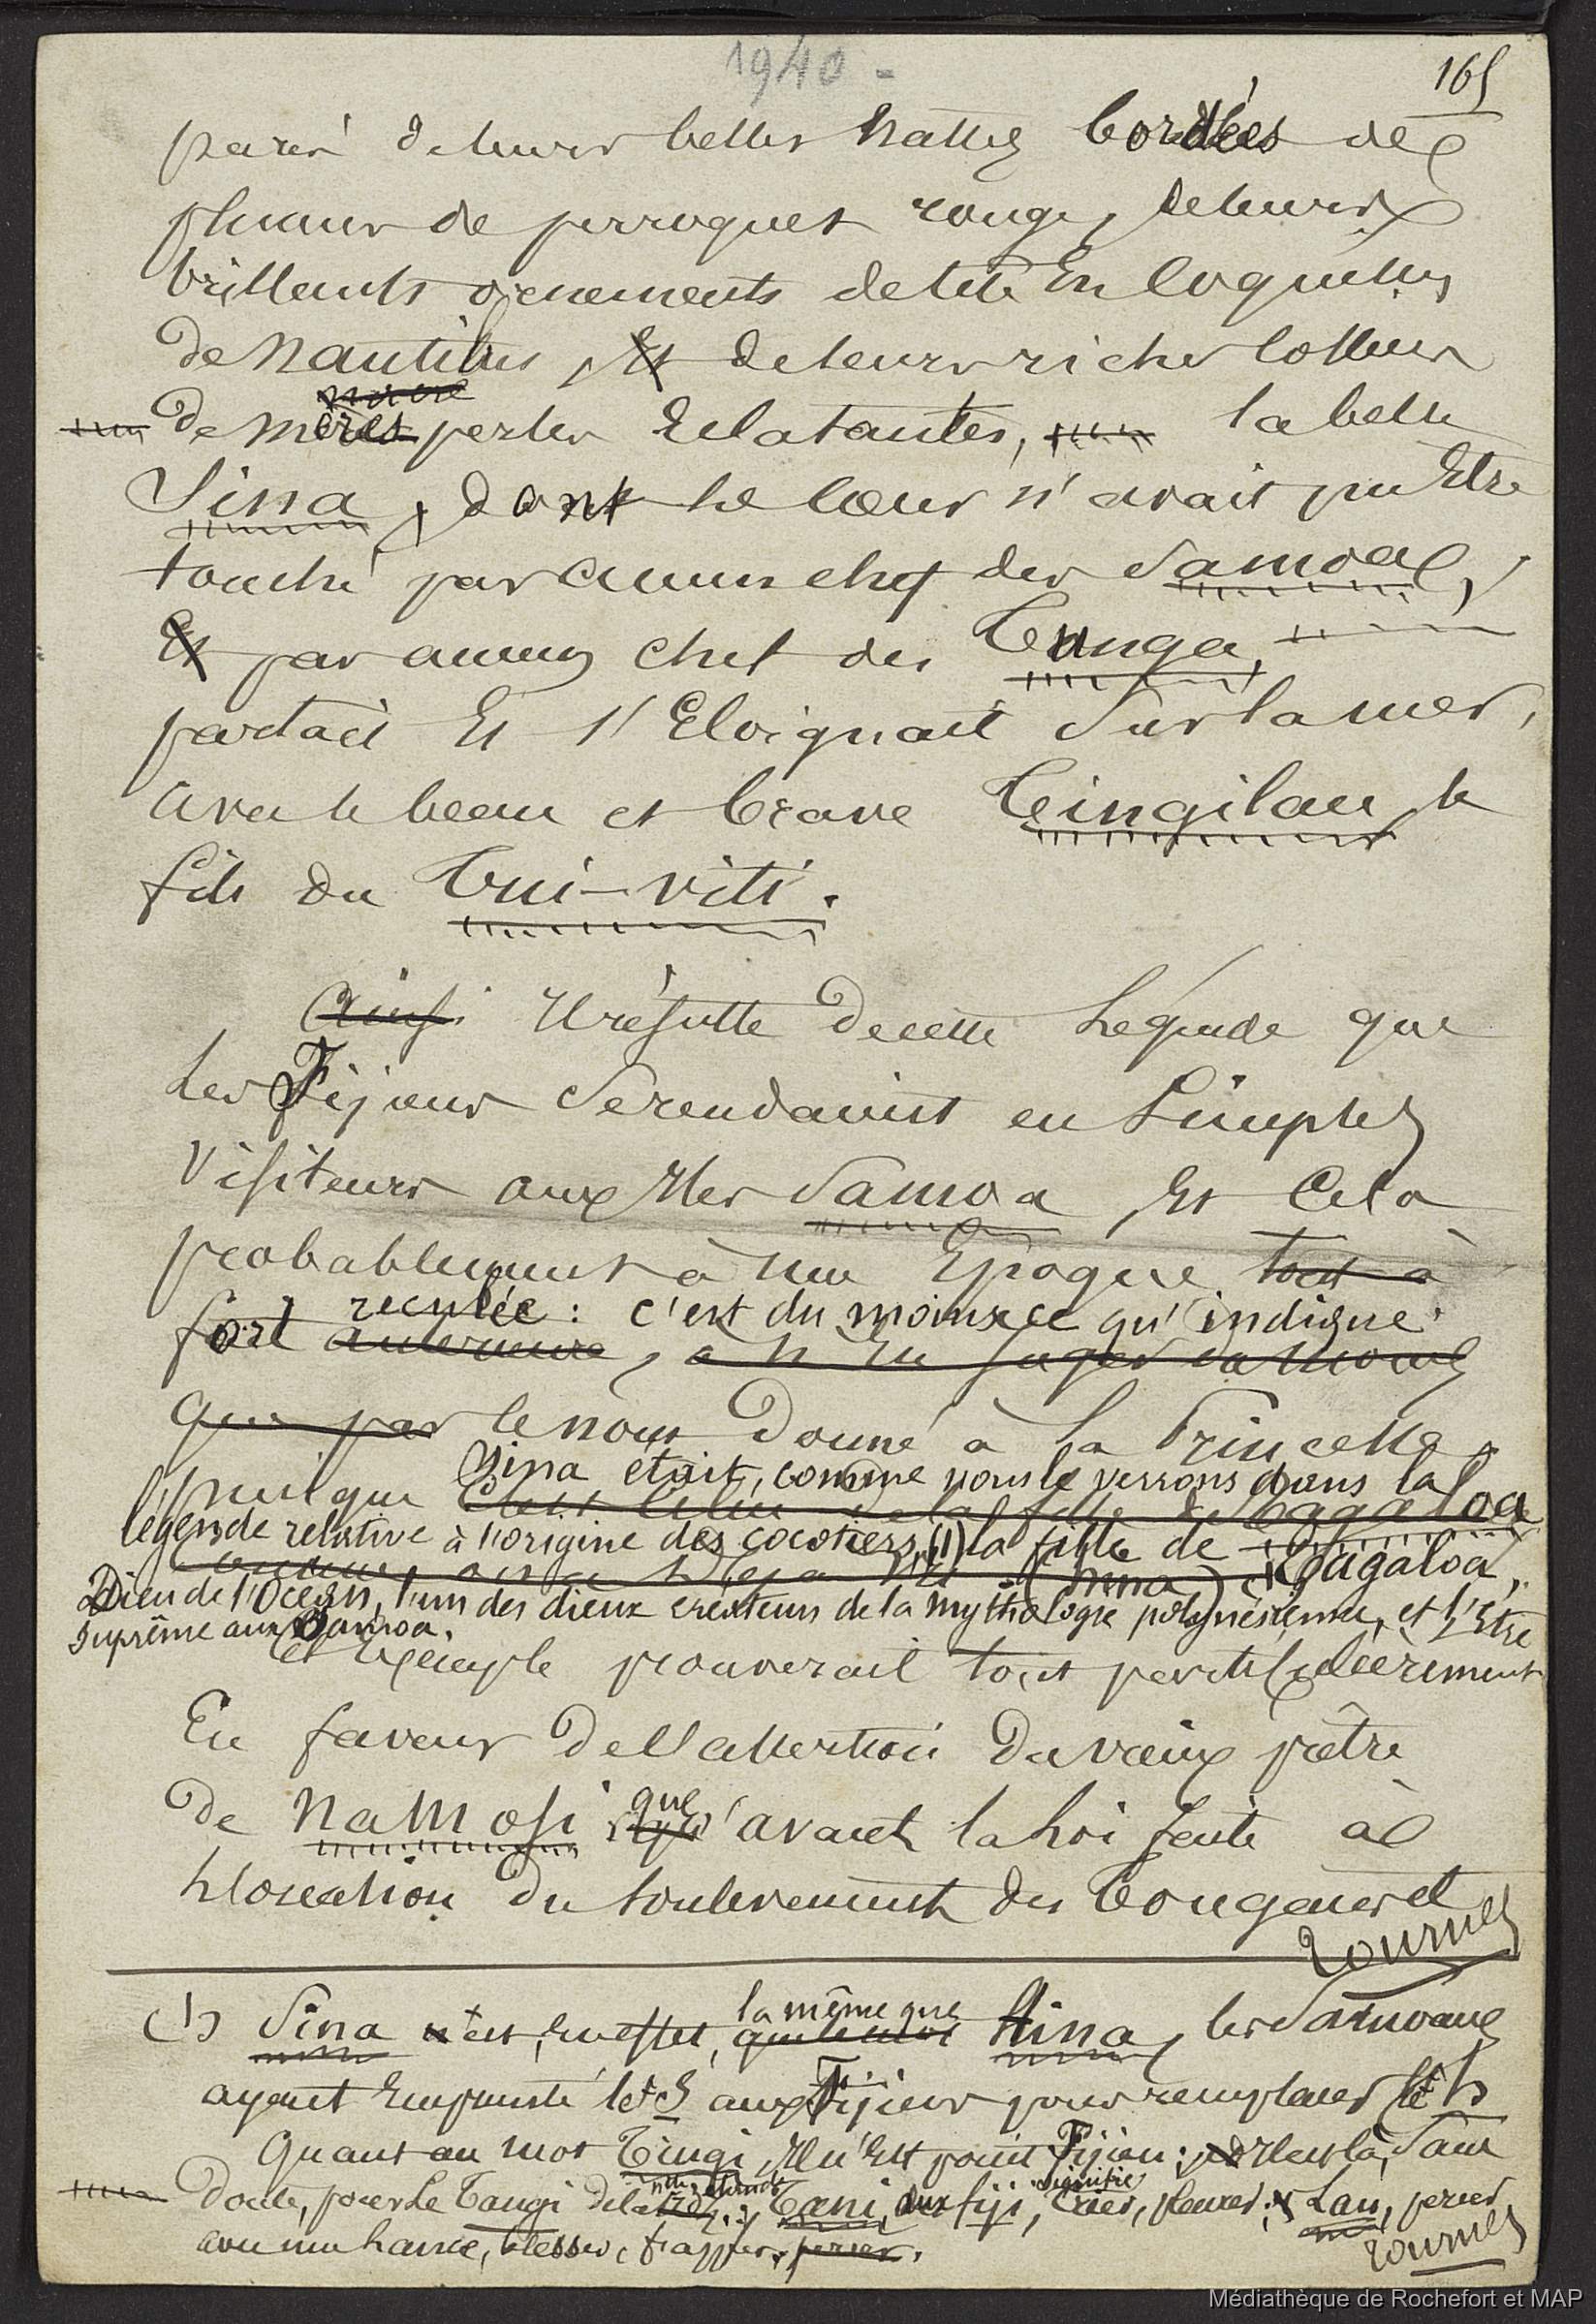 1940 -
165
parés de leurs belles nattes bordées de
plumes de perroquets rouges, de leurs
brillants ornements de tête en coquilles
de nautilus, Et de leurs riches colliers
de mères nacre perles Eclatantes, la belle
Sina, dont le cœur n'avait pu Etre
touché par aucun chef des Samoa,
Et par aucun chef des Tunga,
partait Et s'Eloignait sur la mer,
avec le beau et brave Tingilau, le
fils du Tui-viti.
Ainsi Il résulte de cette légende que
les Fijiens se rendaient en simples
visiteurs aux Iles Samoa, Et Cela
probablement à une Epoque tout à
reculée : c'est du moins ce qu'indique
fort antérieure, à N'En juger du moins
que par le nom donné à la Princesse
Sina était, comme nous le verrons dans la
puisque Tagaloa
légende relative à l'origine des cocotiers, (1) la fille de Tagaloa,
Dieu de l'Océan, l'un des dieux créateurs de la mythologie polynésienne, et l'Etre
Suprême aux Samoa.
Cet exemple prouverait tout particulièrement
En faveur de l'assertion du vieux prêtre
de Namosi que avant la loi faite à
l'occasion du soulèvement des Tongans et
tournez
(1) Sina n'est, En effet, la même que Hina, les Samoans
ayant Emprunté le S aux Fijiens pour remplacer le h
Quant au mot Tingi, Il n'Est point Fijien ; Il est là, Sans
doute, pour le Tangi de la nlle Zélande ; Tani, aux fiji, signifie Crier, pleurer ; & Lau, percer
avec une lance, blesser, frapper. percer.
tournez
Médiathèque de Rochefort et MAP